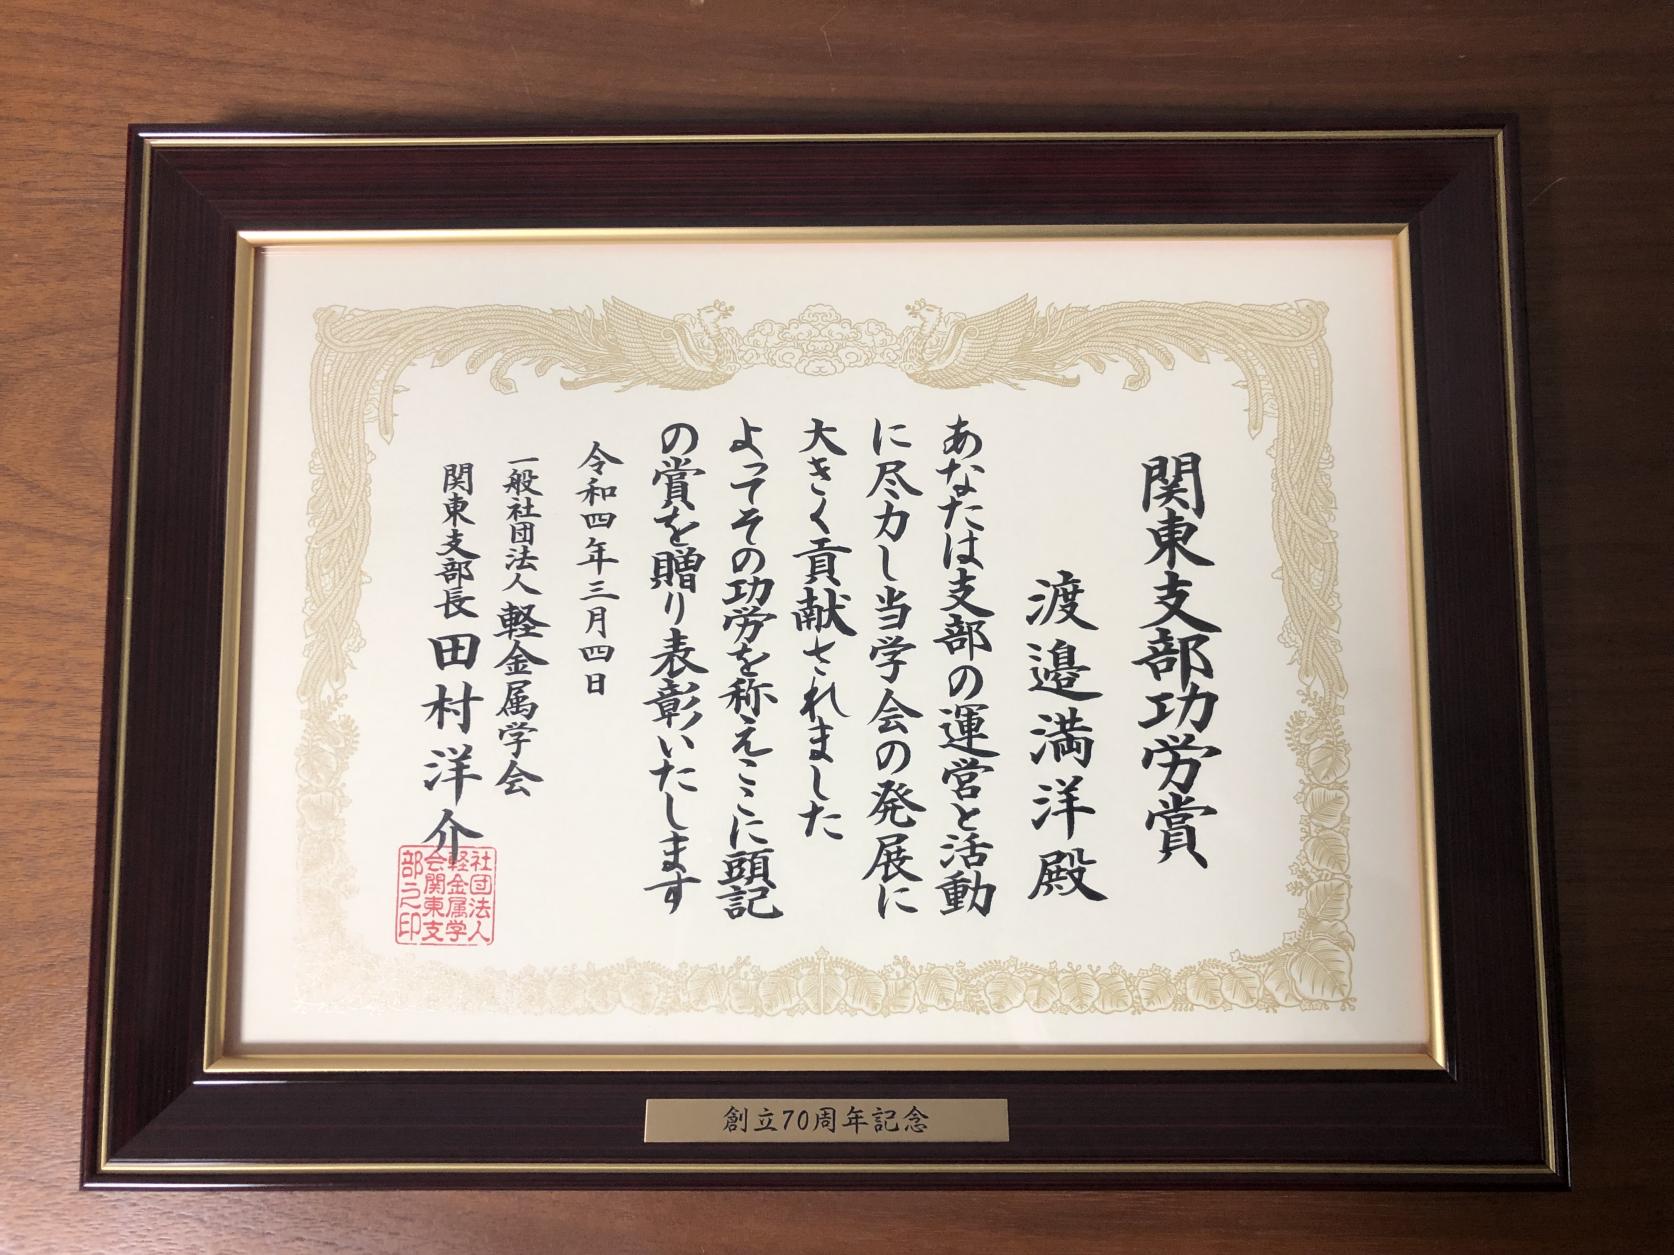 関東支部功労賞
渡邉満洋殿
あなたは支部の運営と活動
に尽力し当学会の発展に
大きく貢献されました
よってその功労を称えここに頭記
の賞を贈り表彰いたします
令和四年三月四日
一般社団法人軽金属学会
関東支部長田村洋介
社団法人
軽金属学
会関東支
部之印
創立70周年記念